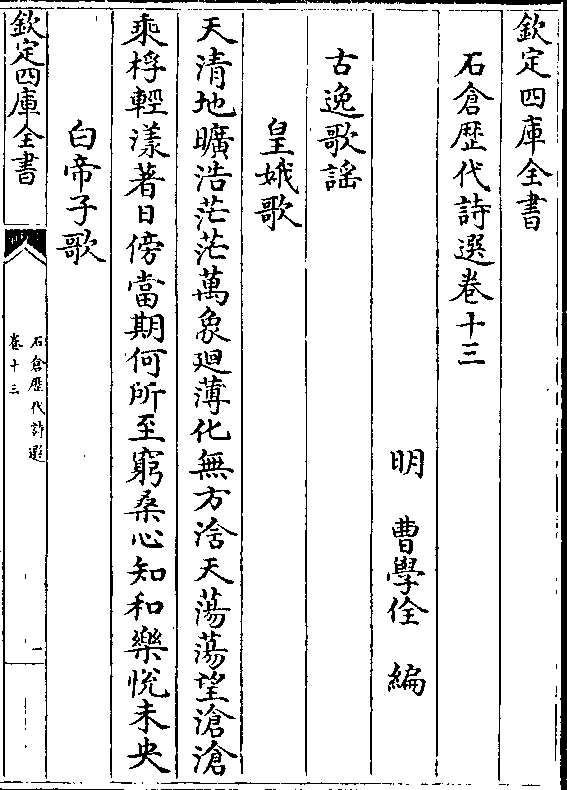 欽定四庫全書
石倉歴代詩選卷十三
明 曹學佺 編
古逸歌謡
皇娥歌
天清地曠浩茫茫萬象廻薄化無方浛天蕩蕩望滄滄
乘桴輕漾著日傍當期何所至窮桑心知和樂悅未央
白帝子歌
欽定四庫全書
石倉歴代詩選
卷十三
一